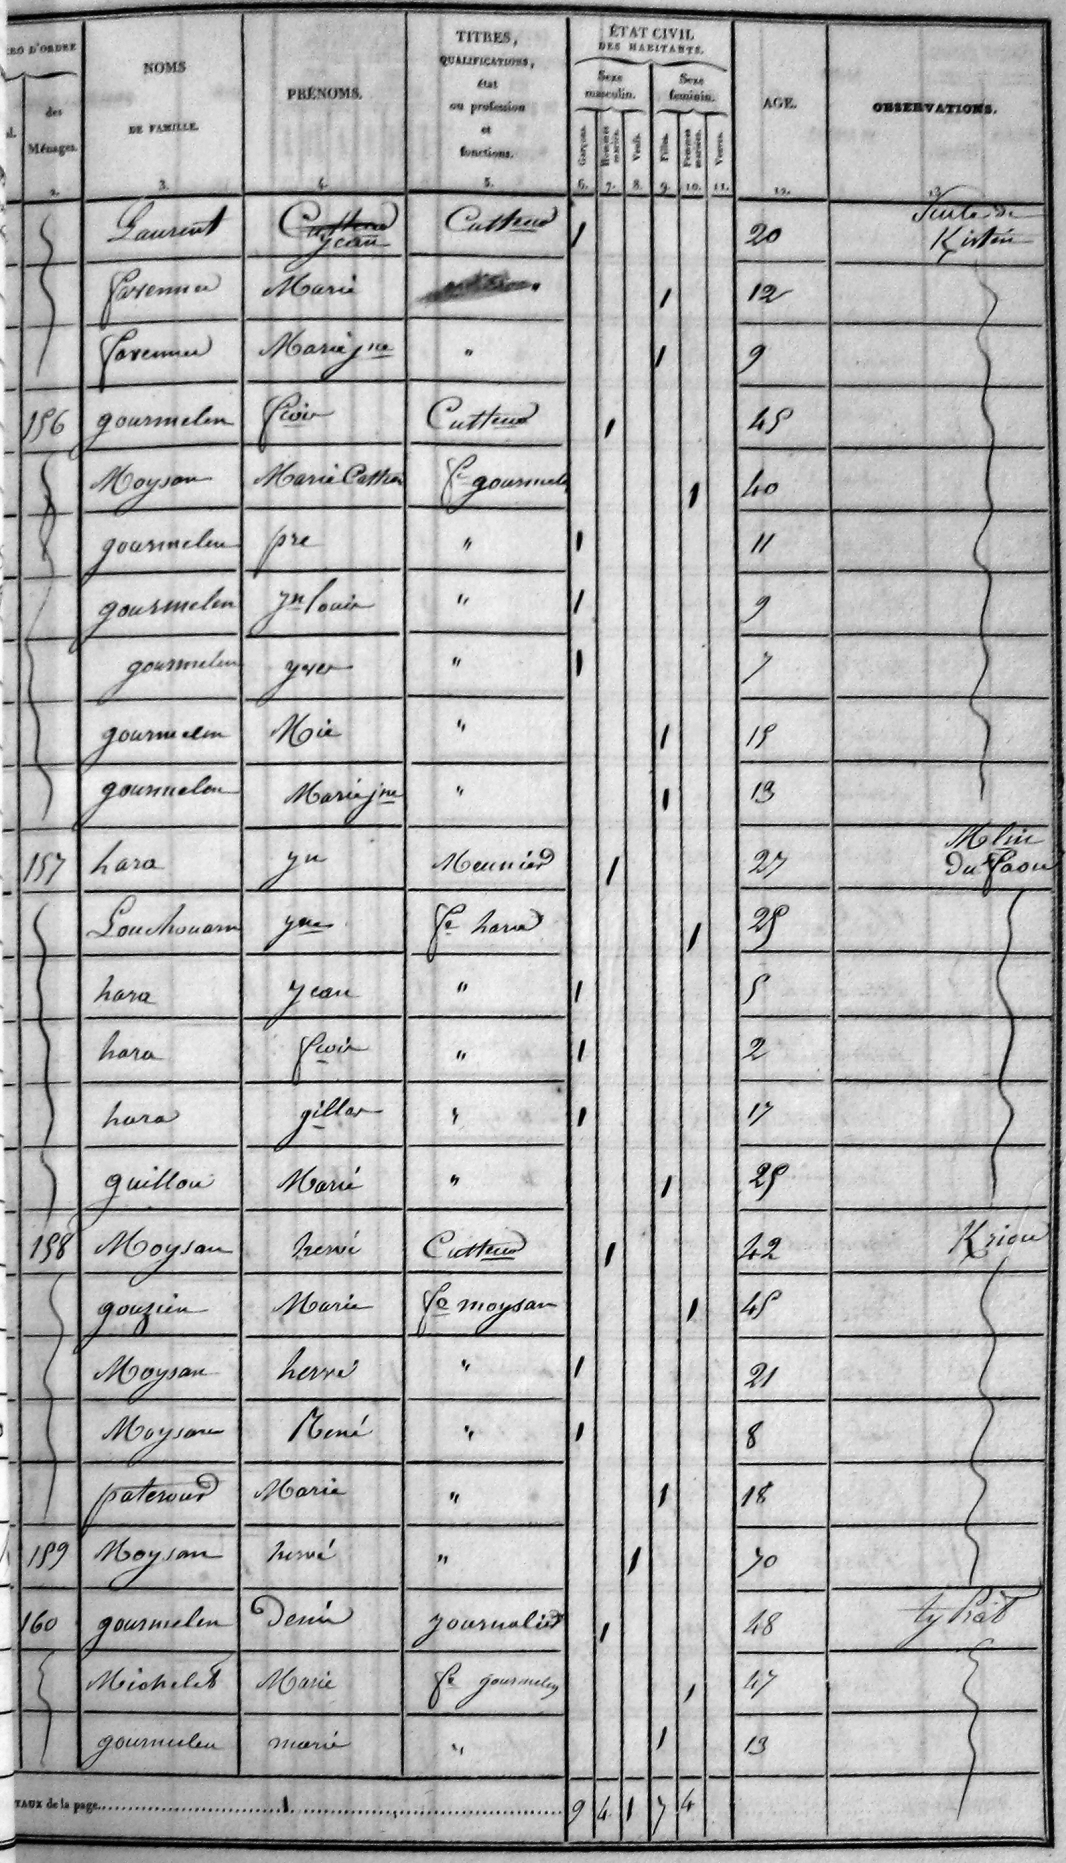 RO D'ORDRE
des
Ménages.
2.
NOMS
DE FAMILLE.
3.
PRÉNOMS.
4.
TITRES,
QUALIFICATIONS,
état
ou profession
et
fonctions.
5.
ÉTAT CIVIL
DES HABITANTS.
Sexe
masculin.
Sexe
féminin.
Garçons.
Hommes
mariés.
Veufs.
Filles.
Femmes
mariées.
Veuves.
6. 7. 8. 9. 10. 11.
AGE.
12.
OBSERVATIONS.
13.
Laurent Jean Cult 1 20 Suite de
Kistin
favennec Marie 1 12
favennec Marie jne " 1 9
156 gourmelen fcois Cult 1 45
Moysan Marie Cath fe gourmeln 1 40
gourmelen pre " 1 11
gourmelen yn louis " 1 9
gourmelen yves " 1 7
gourmelen Mie " 1 15
gourmelen Marie jne " 1 13
157 hara yn Meunier 1 27 Mlin
du faou
Louchouarn yne fe hara 1 25
hara yean " 1 5
hara fcois " 1 2
hara gilles " 1 17
guillou Marie " 1 25
158 Moysan hervé Cult 1 42 Kriou
gouzien Marie fe moysan 1 45
Moysan hervé " 1 21
Moysan René " 1 8
paterour Marie " 1 18
159 Moysan hervé " 1 70
160 gourmelen Denis journalier 1 48 ty Prat
Michelet Marie fe gourmelen 1 47
gourmelen marie " 1 13
TAUX de la page 9 4 1 7 4